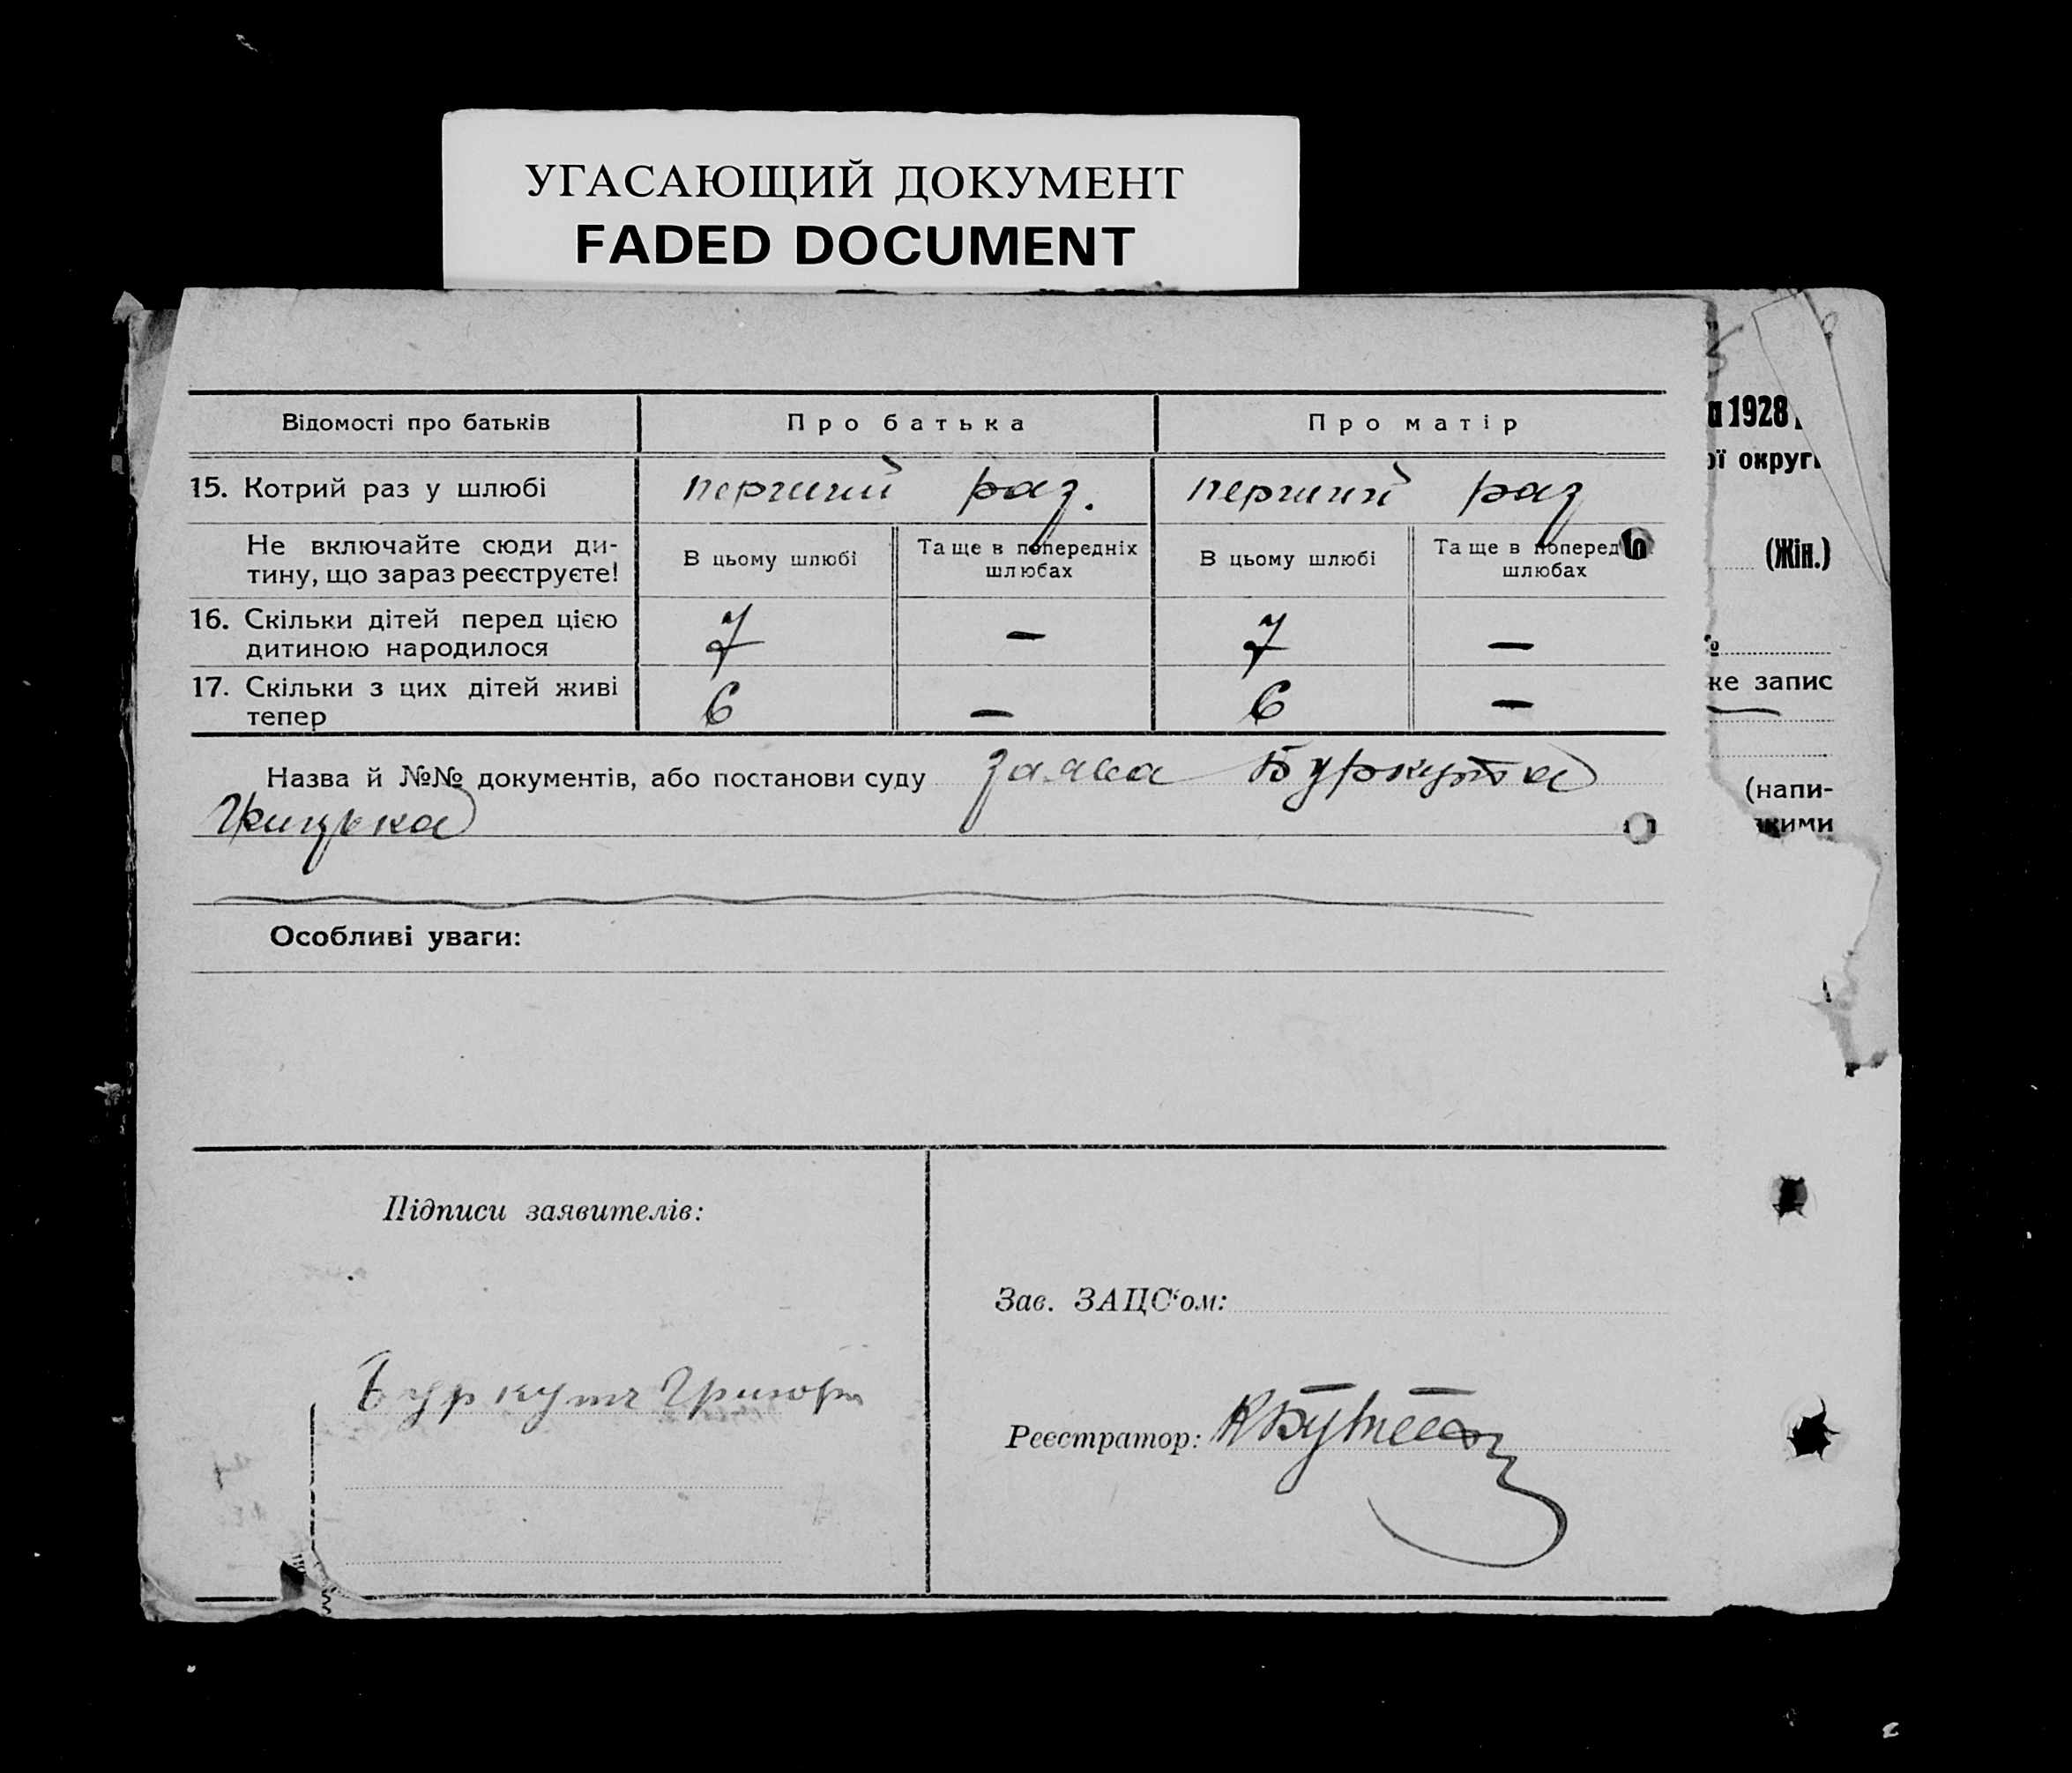 УГАСАЮЩИЙ ДОКУМЕНТ
FADED DOCUMENT
Відомості про батьків Про батька Про матір
15. Котрий раз у шлюбі перший раз. перший раз
Не включайте сюди ди-
тину, що зараз реєструєте!
В цьому шлюбі
Та ще в попередніх
шлюбах
В цьому шлюбі
Та ще в поперед
шлюбах
16. Скільки дітей перед цією
дитиною народилося
7 — 7 —
17. Скільки з цих дітей живі
тепер
6 — 6 —
Назва й №№ документів, або постанови суду заява Буркута
Грицька
Особливі уваги:
Підписи заявителів:
Зав. ЗАЦС‘ом:
Буркутъ
Реєстратор:
1928
ої округи
(Жін.)
же запис
(напи-
кими